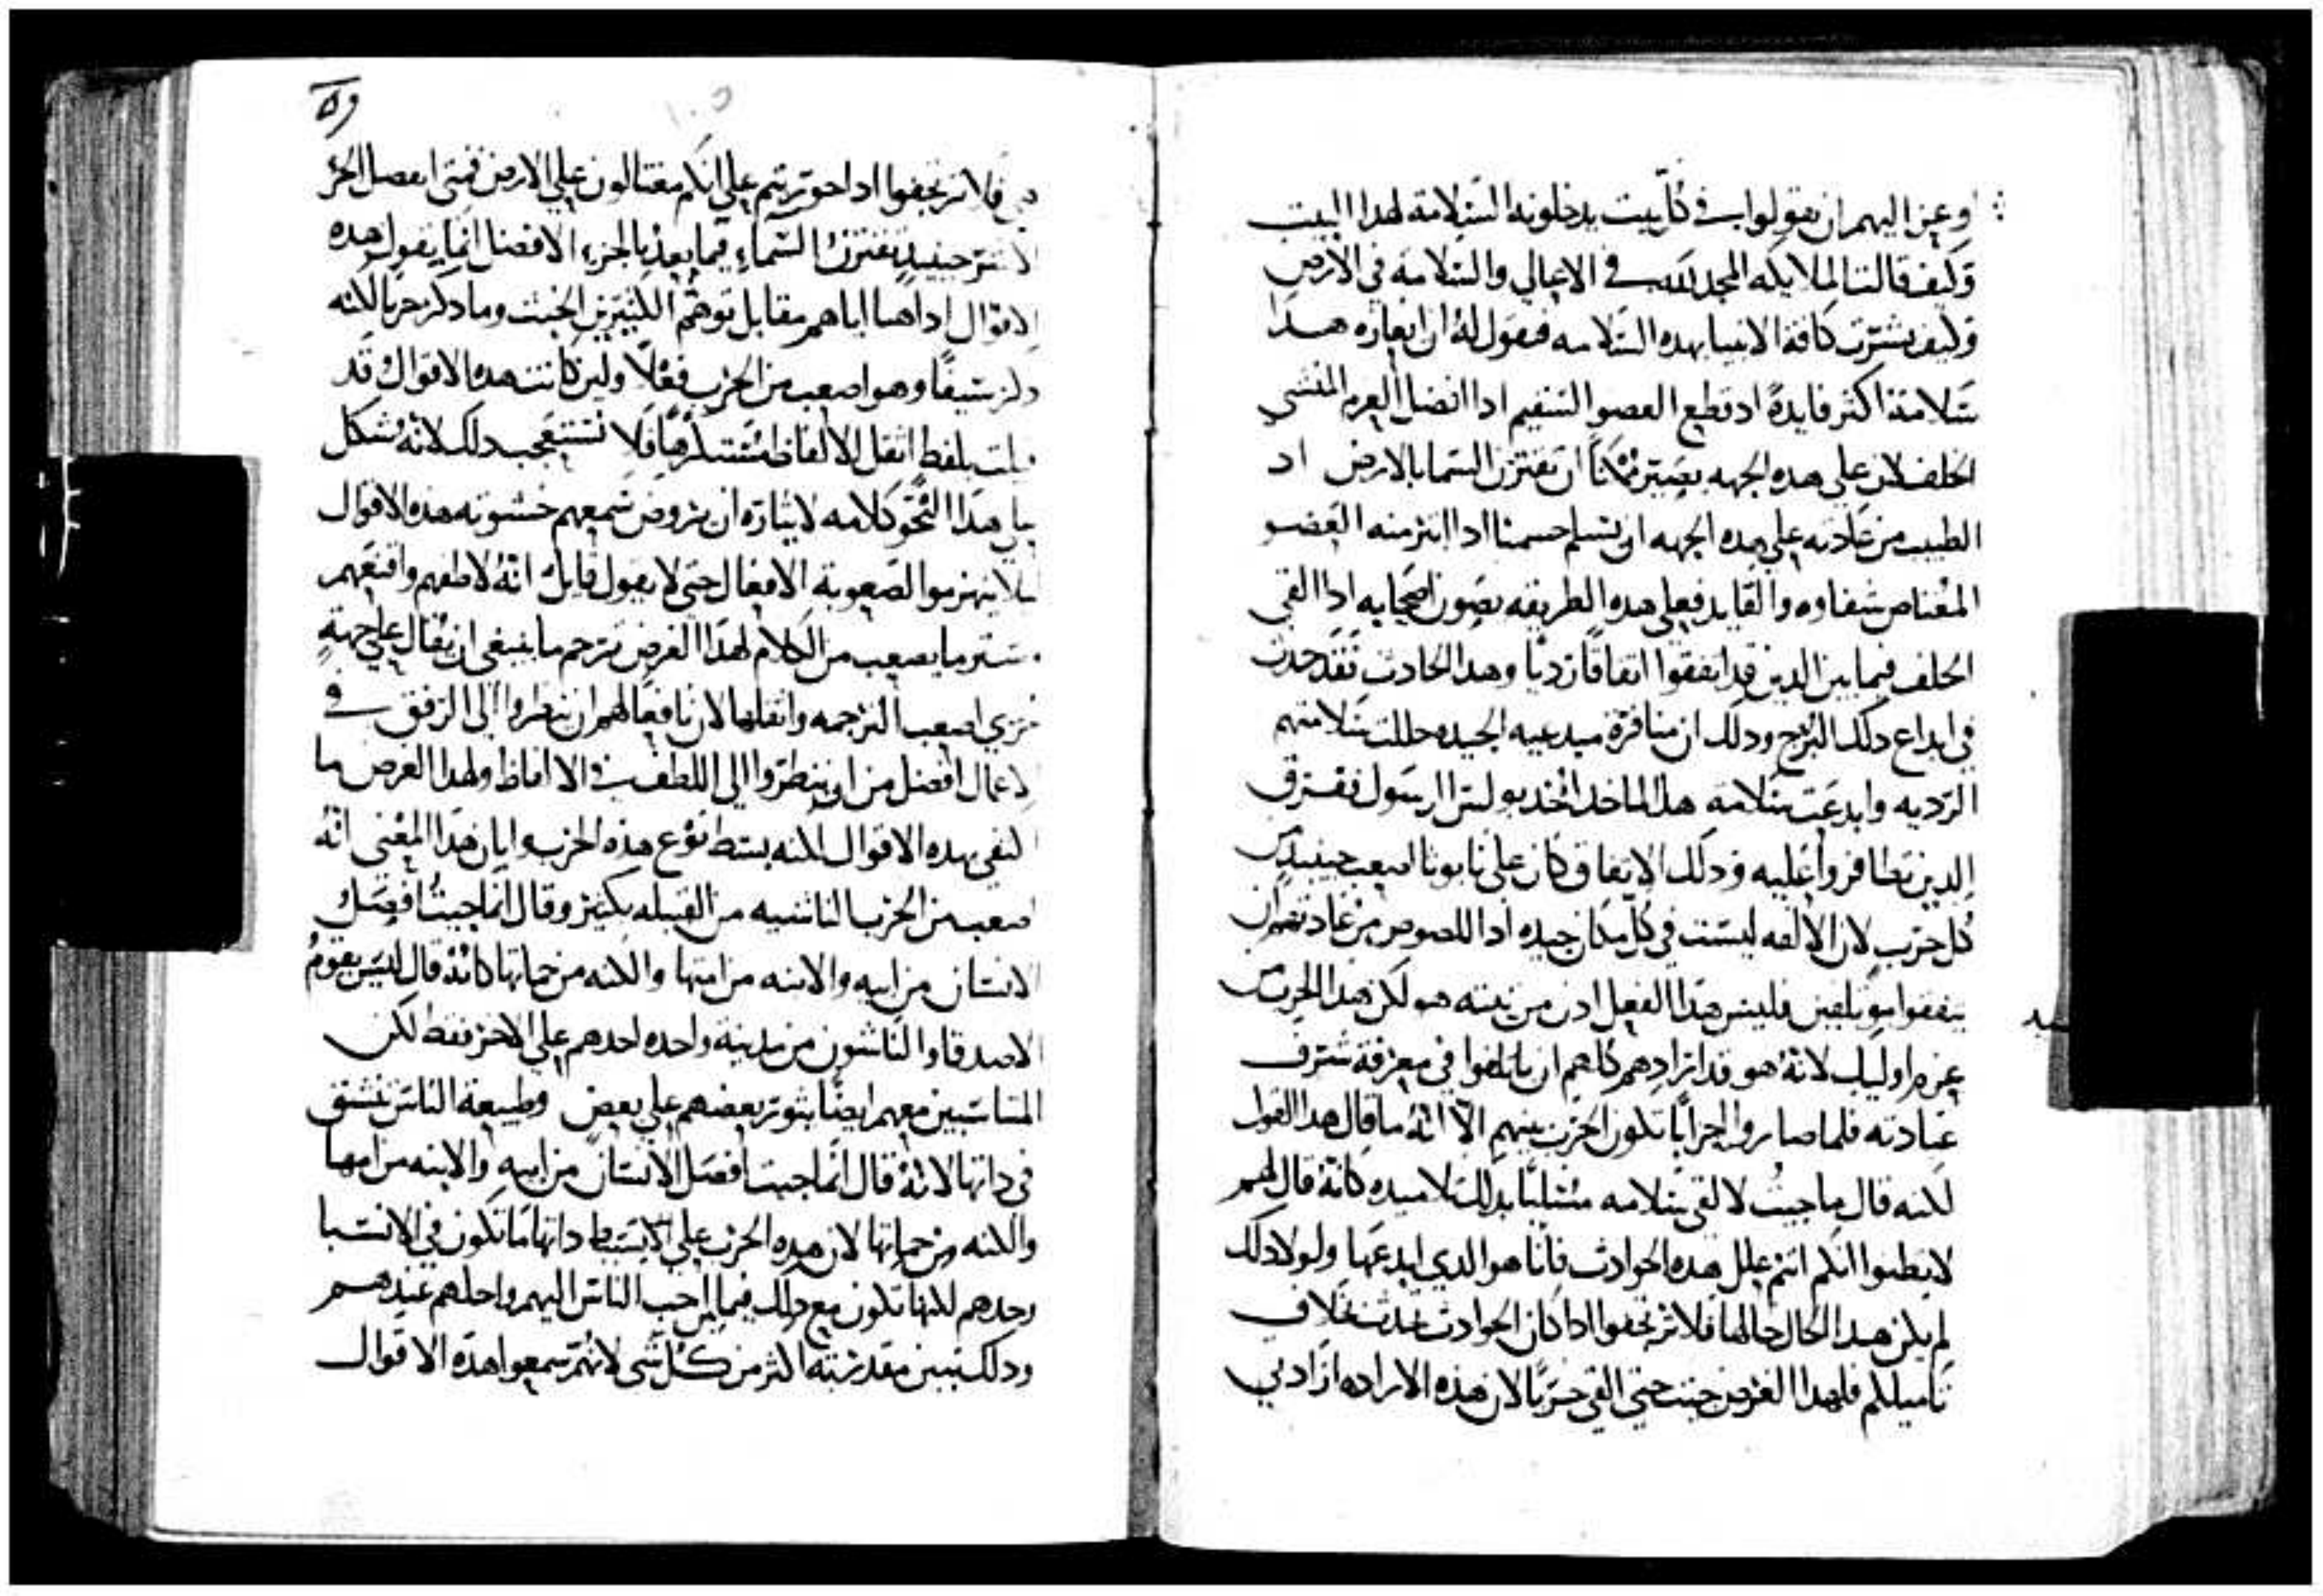 وعز اليهم ان يقولوا في كل بيت يدخلونه السلامة لهدا البيت
وكيف قالت الملايكه المجد لله في الاعالي والسلامه في الارض
وكيف بشرت كافة الانبيا بهده السلامه فيقول له ان ايعازه هدا
سلامة اكثر فايدة اد قطع العضو السقيم ادا انفصل المنشي
الخلف لان على هده الجهه يصير ممكناً ان تقترن السما بالارض اد
الطبيب من عادته على هده الجهه ان يسلم جسمنا ادا ابتر منه العضو
المعتاص شفاوه والقايد فعلى هده الطريقه يصون اصحابه ادا القى
الخلف فيما بين الدين قد اتفقوا اتفاقا رديا وهدا الحادث فقد حدث
في ابداع دلك البرج ودلك ان منافرة مبدعيه الجيده حللت سلامتهم
الرديه وابدعت سلامه هدا الماخد اتخد بولس الرسول ففرق
الدين تظافروا عليه ودلك الاتفاق كان على نابوثا اصعب حينيد من
كل حرب لان الالفه ليست في كل مكان جيده اد اللصوص من عادتهم ان
يتفقوا موتلفين فليس هدا الفعل ادن من نيته هو لكن هدا الحرب من
عزم اوليك لانه هو قد ارادهم كلهم ان ياتلفوا في معرفة شرف
عبادته فلما صاروا احزابًا تكون الحرب بينهم الا انه ما قال هدا القول
لكنه قال ما جيت لالقي سلامه مسليًا بدلك تلاميده كانه قال لهم
لا تظنوا انكم انتم علل هده الحوادث فانا هو الدي ابدعها ولولا دلك
لم يكن هدا الحال حالها فلا ترتجفوا ادا كان الحوادث تحدث بخلاف
تاميلكم فلهدا الغرض جيت حتى القي حربًا لان هذه الاراده ارادتي
فلا ترتجفوا ادا حوربتم على انكم مغتالون على الارض فمتى انفصل الجز
الاشر حينيد تقترن السماء فيما بعد بالجزء الافضل انما يقول هده
الاقوال اياهم مقابل توهم الكثيرين الخبيث وما دكر حربًا لكنه
دكر سيفًا وهو اصعب من الحرب فعلا ولين كانت هده الاقوال قد
قيلت بلفظ اثقل الالفاظ فلا تستعجب دلك لانه شكل
على هدا النحو كلامه لايثاره ان يروض سمعهم خشونه هذه الاقوال
ليلا ينهزموا لصعوبة الافعال حتى لا يقول قايل انه لاطفهم واقنعهم
وستر ما يصعب من الكلام لهدا الغرض ترجم ما ينبغي ان يقال على جهة
اخري اصعب الترجمه واثقلها لان نافعا لهم ان ينظروا الى الرفق في
الاعمال افضل من ان ينظروا الى اللطف في الالفاظ ولهدا الغرض ما
اكتفى بهده الاقوال لكنه بسط نوع هذه الحرب وابان هدا المعنى انه
اصعب من الحرب الناشيه من القبيله بكثير وقال انما جيت افصل
الانسان من ابيه والابنه من امها والكنه من حماتها كانه قال ليس يقوم
الاصدقا والناشون من مدينه واحده احدهم على الاخر فقط لكن
المناسبين معهم ايضا يثور بعضهم على بعض وطبيعة الناس تنشق
في داتها لانه قال انما جيت افصل الانسان من ابيه والابنه من امها
والكنه من حماتها لان هده الحرب على البسيط داتها ما تكون في الانسبا
وحدهم لكنها تكون مع دلك فيما بين احب الناس اليهم واحلهم عندهم
ودلك تبين مقدرته اكثر من كل شى لانهم سمعوا هذه الاقوال